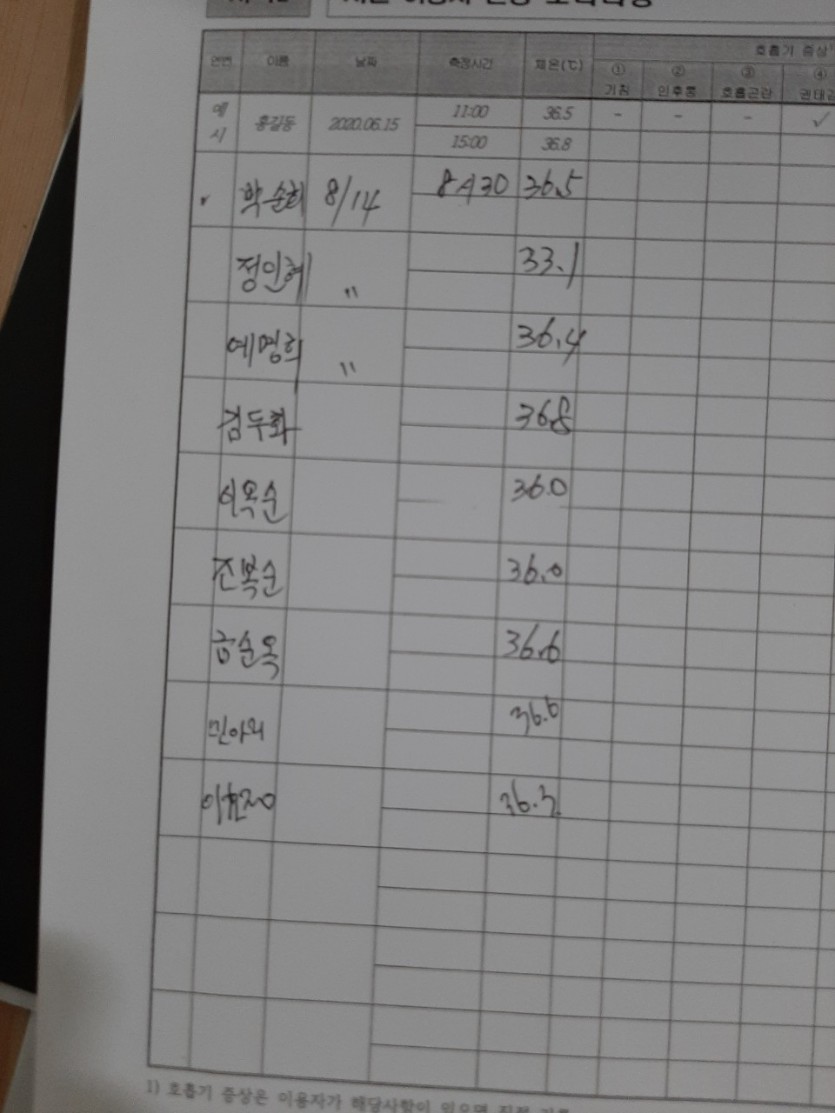 연번 이름 날짜 측정시간 체온(℃) 호흡기 증상1
① ② ③ ④
기침 인후통 호흡곤란 권태감
예시 홍길동 2020.06.15 11:00 36.5 - - - ✓
15:00 36.8
박순희 8/14 8시30 36.5
정인혜 〃 33.1
예명희 〃 36.4
김두화 36.8
이옥순 36.0
조복순 36.0
금순옥 36.6
민아의 36.6
36.3
1) 호흡기 증상은 이용자가 해당사항이 있으면 직접